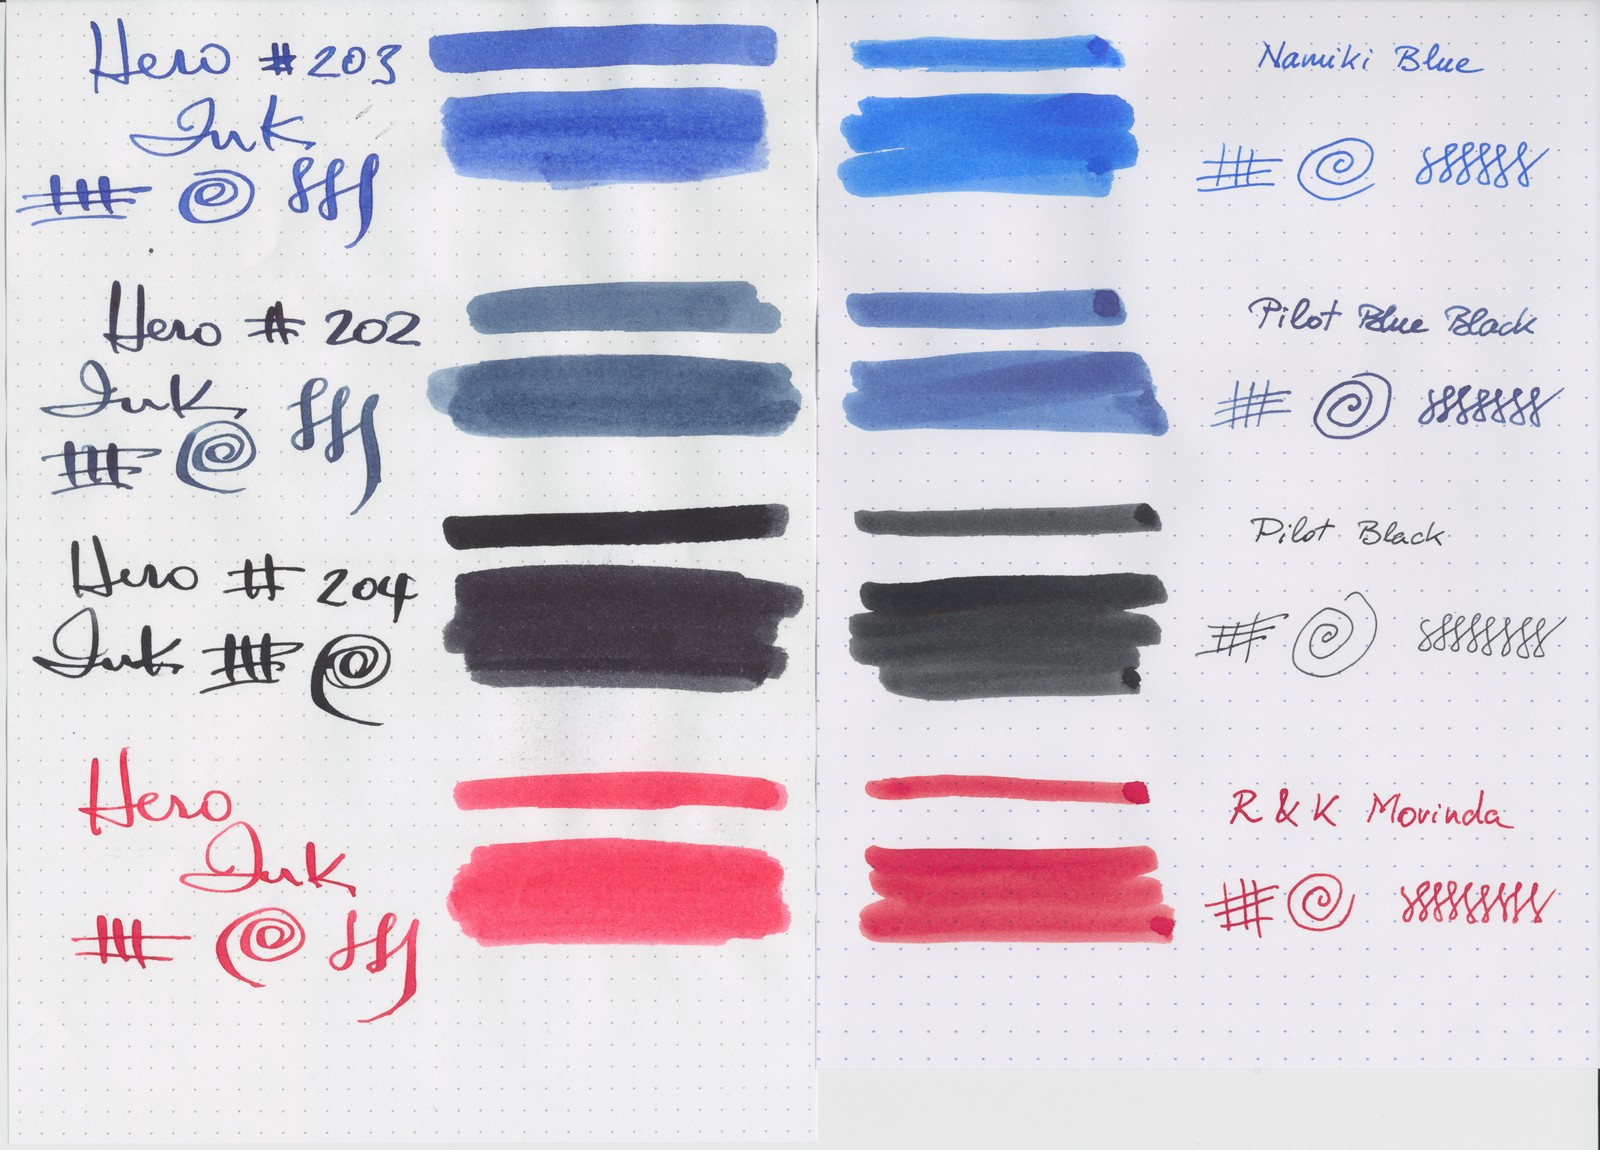 Hero #203
Ink
Hero # 202
Ink
Hero # 204
Ink
Hero
Ink
Namiki Blue
Pilot Blue Black
Pilot Black
R & K Morinda